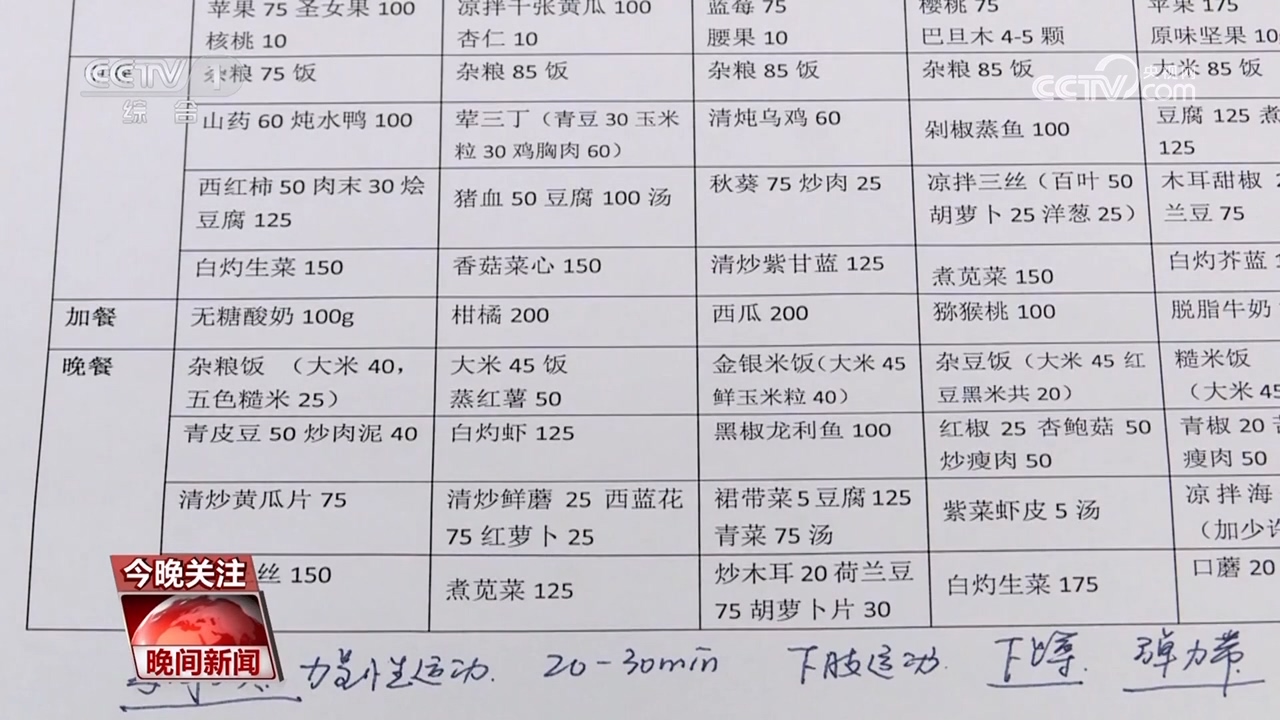 苹果 75 圣女果 100
核桃 10
凉拌千张黄瓜 100
杏仁 10
蓝莓 75
腰果 10
樱桃 75
巴旦木 4-5 颗
苹果 175
原味坚果 10
杂粮 75 饭
杂粮 85 饭
杂粮 85 饭
杂粮 85 饭
大米 85 饭
山药 60 炖水鸭 100
荤三丁（青豆 30 玉米
粒 30 鸡胸肉 60）
清炖乌鸡 60
剁椒蒸鱼 100
豆腐 125 煮
125
西红柿 50 肉末 30 烩
豆腐 125
猪血 50 豆腐 100 汤
秋葵 75 炒肉 25
凉拌三丝（百叶 50
胡萝卜 25 洋葱 25）
木耳甜椒
兰豆 75
白灼生菜 150
香菇菜心 150
清炒紫甘蓝 125
煮苋菜 150
白灼芥蓝
加餐
无糖酸奶 100g
柑橘 200
西瓜 200
猕猴桃 100
脱脂牛奶
晚餐
杂粮饭 （大米 40，
五色糙米 25）
大米 45 饭
蒸红薯 50
金银米饭（大米 45
鲜玉米粒 40）
杂豆饭（大米 45 红
豆黑米共 20）
糙米饭
（大米 45
青皮豆 50 炒肉泥 40
白灼虾 125
黑椒龙利鱼 100
红椒 25 杏鲍菇 50
炒瘦肉 50
青椒 20
瘦肉 50
清炒黄瓜片 75
清炒鲜蘑 25 西蓝花
75 红萝卜 25
裙带菜 5 豆腐 125
青菜 75 汤
紫菜虾皮 5 汤
凉拌海
（加少许
丝 150
煮苋菜 125
炒木耳 20 荷兰豆
75 胡萝卜片 30
白灼生菜 175
口蘑 20
力量性运动. 20-30min 下肢运动. 下蹲. 弹力带.
CCTV 1
综合
CCTV 央视网
com
今晚关注
晚间新闻